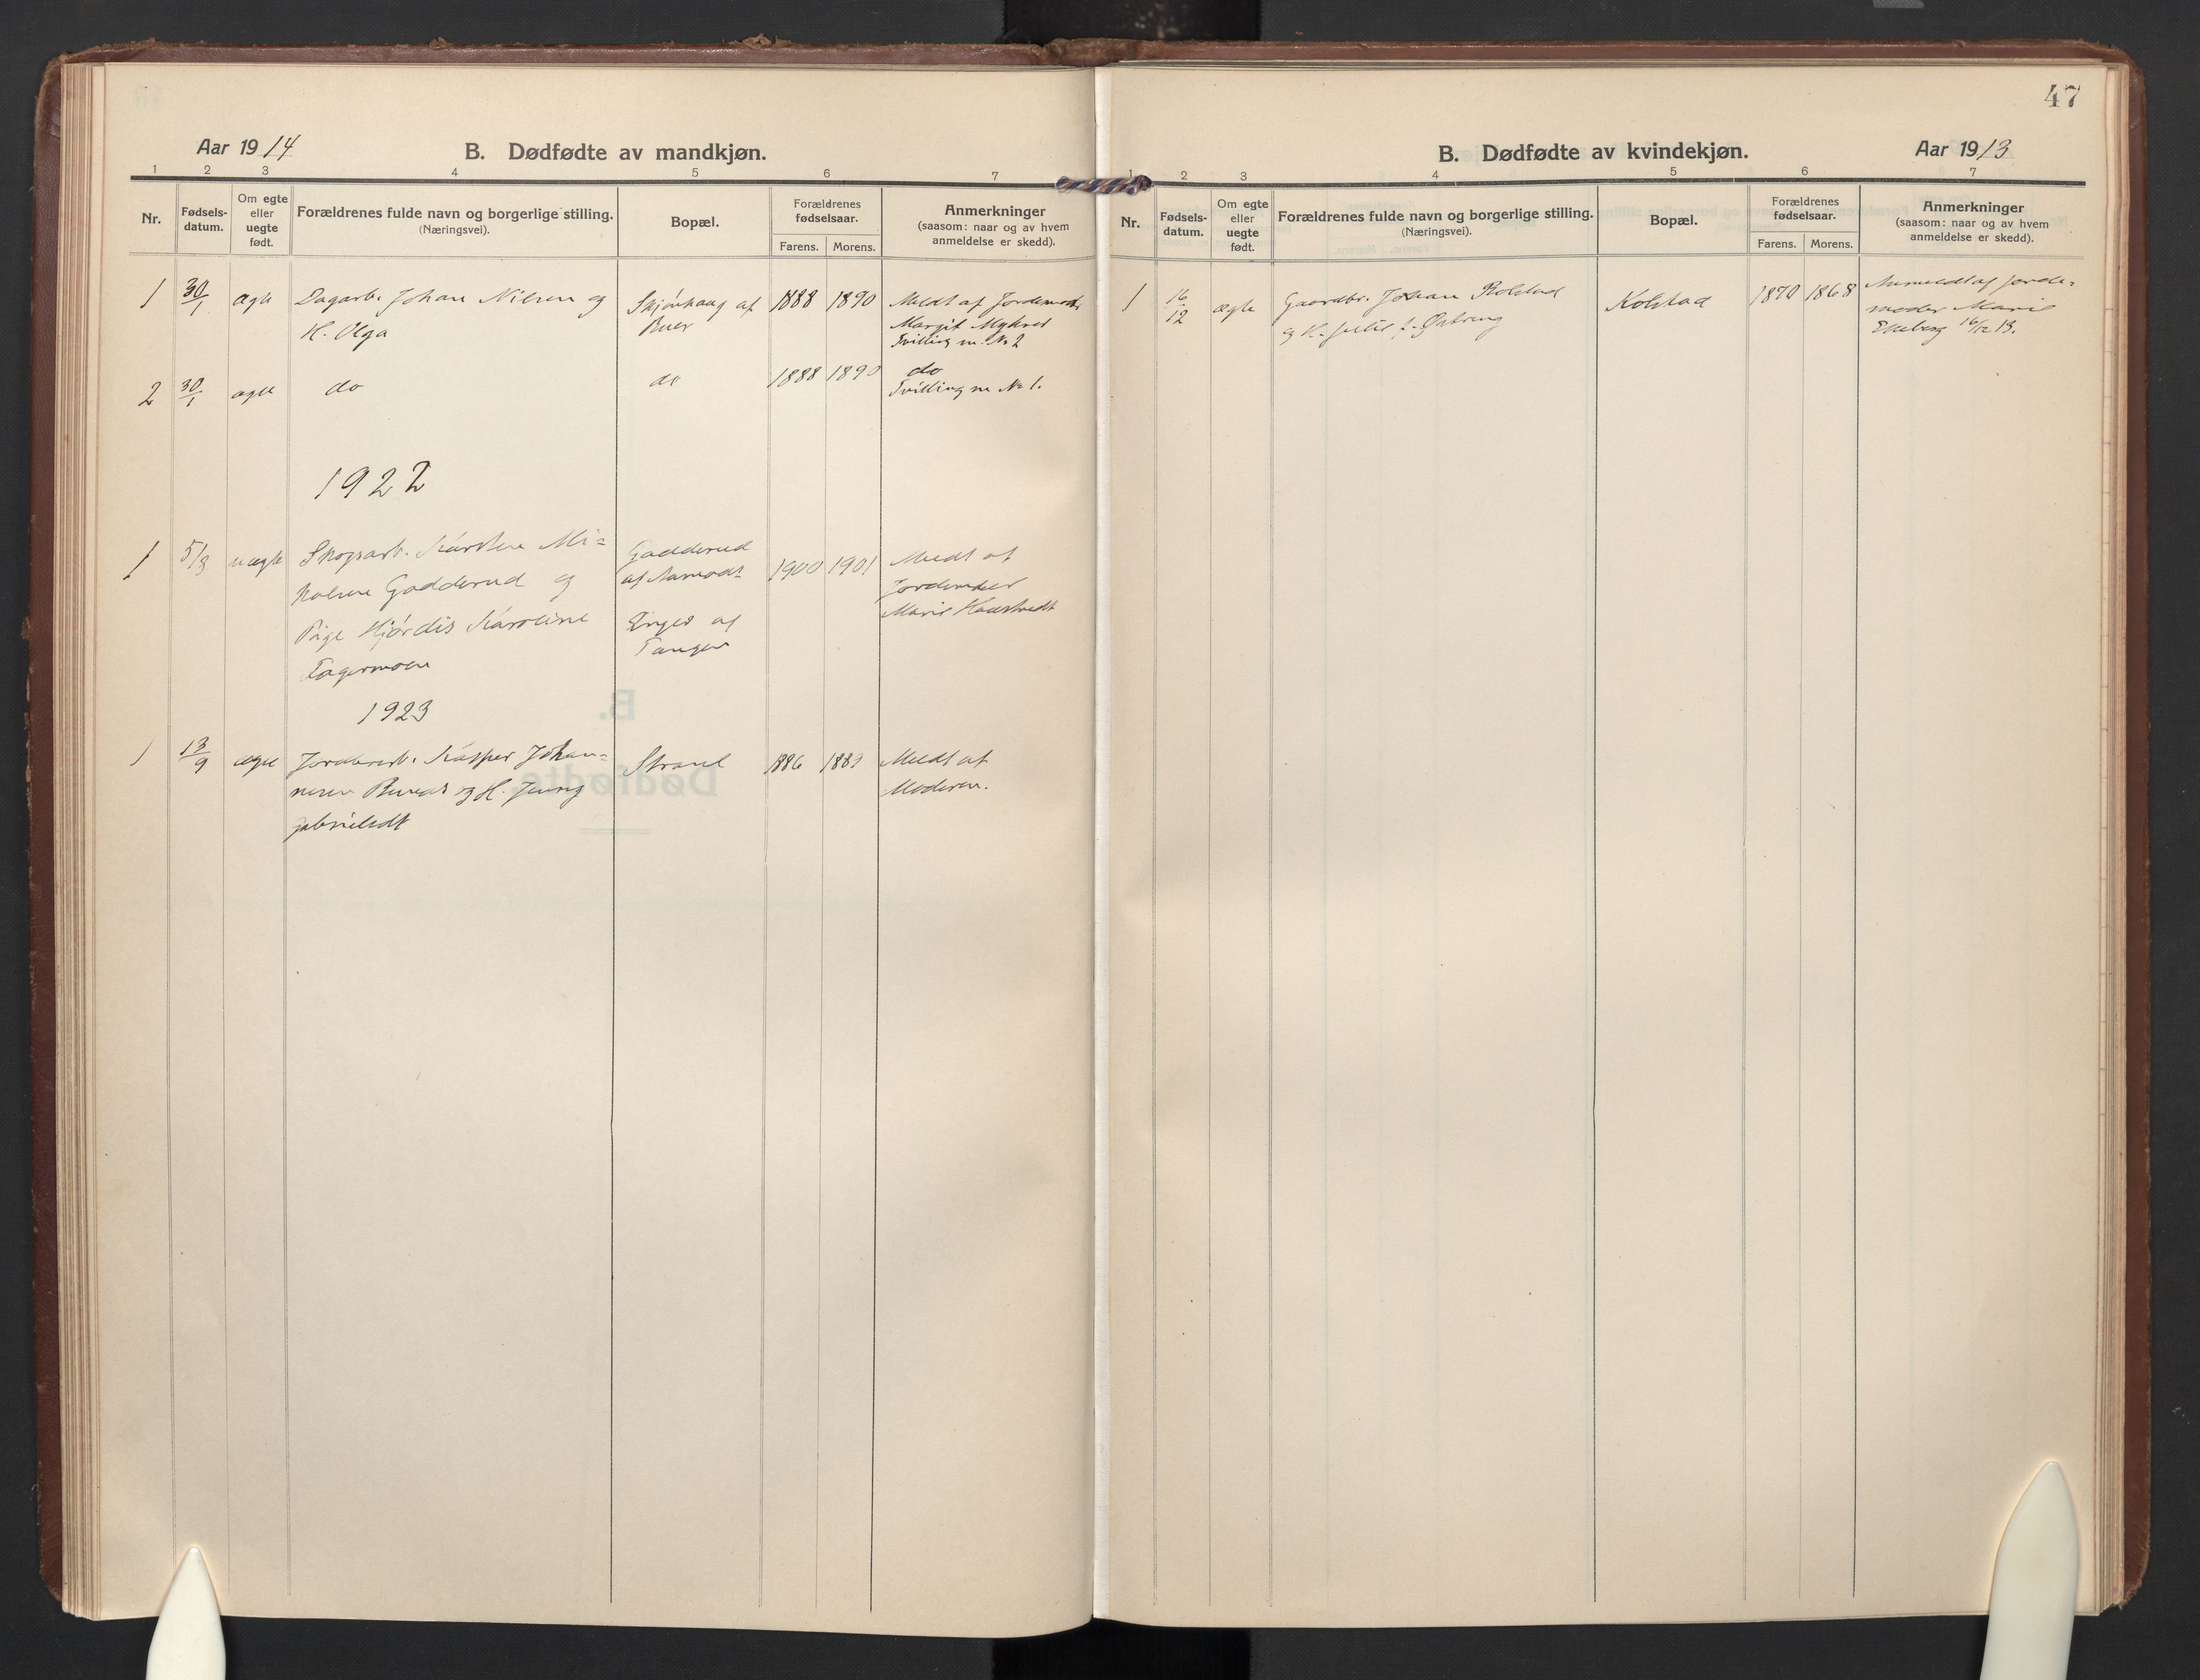 Aar 1914
B. Dødfødte av mandkjøn.
1 2 3 4 5 6 7
Nr.
Fødsels-
datum.
Om egte
eller
uegte
født.
Forældrenes fulde navn og borgerlige stilling.
(Næringsvei).
Bopæl.
Forældrenes
fødselsaar.
Farens. Morens.
Anmerkninger
(saasom: naar og av hvem
anmeldelse er skedd).
1 30/1 ægte Dagarb. Johan Nilsen og Skjønhaug af 1888 1890 Meldt af Jordemoder
H. Olga Buer Margit Myhrer
Tvilling m. No 2
2 30/1 ægte do do 1888 1890 do
Tvilling m No 1.
1922
1 5/3 uægte Skogsarb. Karsten Mi= Gadderud 1900 1901 Meldt af
kalsen Gadderud og af Aamodt Jordemoder
Pige Hjørdis Karoline Enger af Marie
Fagermoen Tangen
1923
1 13/9 ægte Jernbanearb. Kasper Johan= Strand 1886 1889 Meldt af
nesen og H. Jenny Moderen.
47
B. Dødfødte av kvindekjøn.
Aar 1913
1 2 3 4 5 6 7
Nr.
Fødsels-
datum.
Om egte
eller
uegte
født.
Forældrenes fulde navn og borgerlige stilling.
(Næringsvei).
Bopæl.
Forældrenes
fødselsaar.
Farens. Morens.
Anmerkninger
(saasom: naar og av hvem
anmeldelse er skedd).
1 16/12 ægte Gaardbr. Johan Kolstad Kolstad 1870 1868 Anmeldt af Jorde-
og H. f. moder Marie
Elleberg 16/12 13.
B.
Dødfødte.